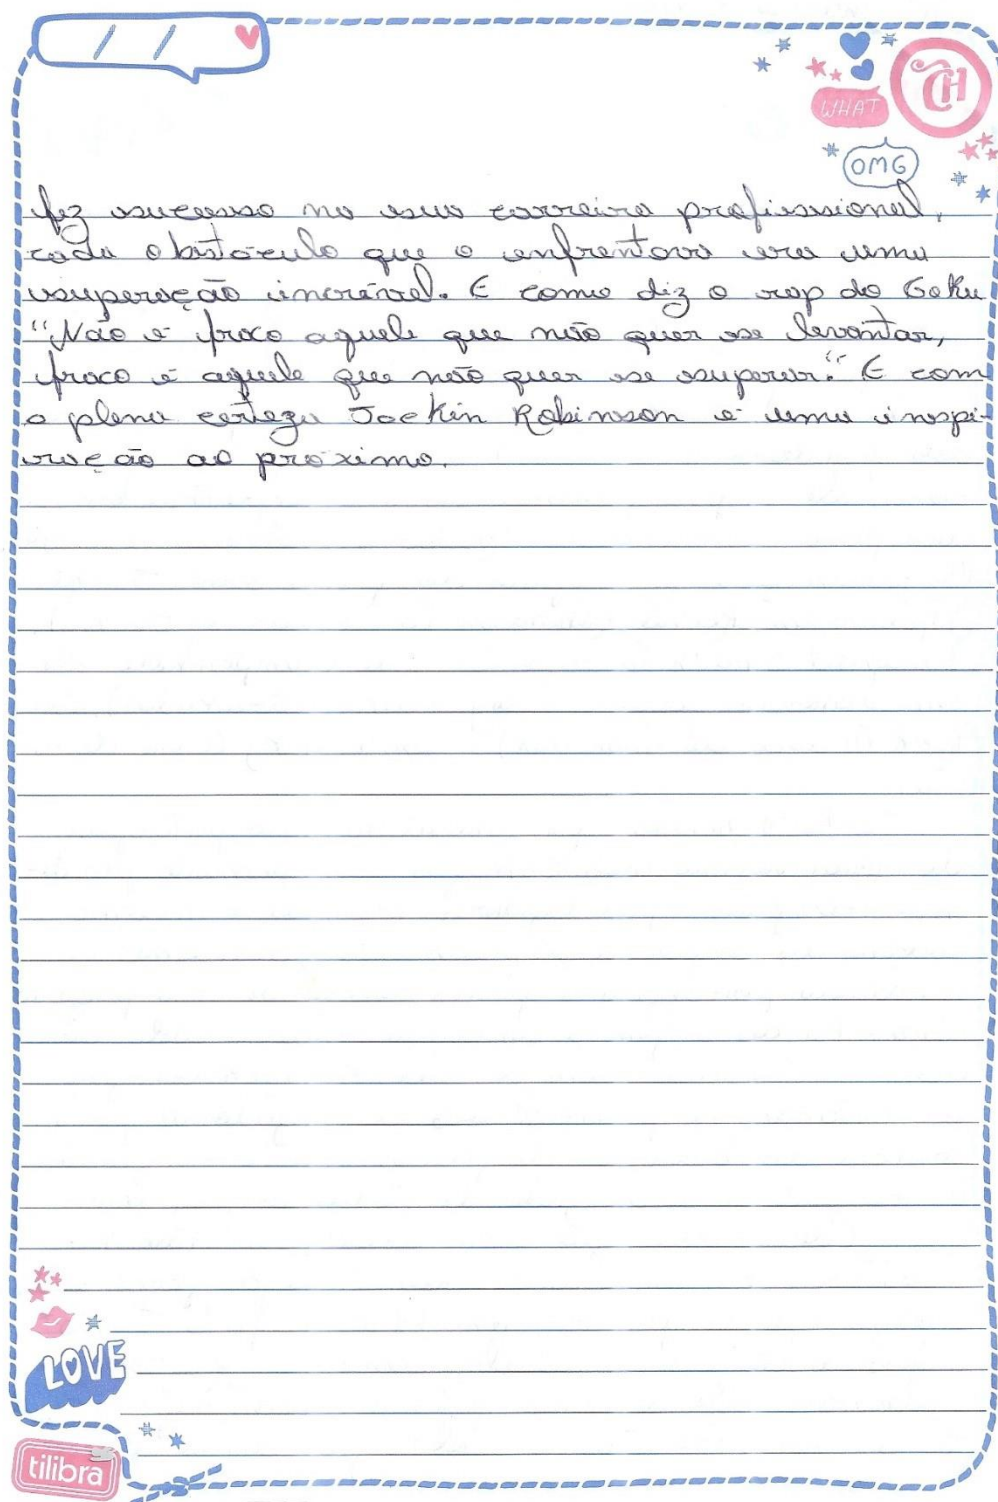 / /
CH
WHAT
OMG
fez sucesso na sua carreira profissional,
cada obstáculo que o enfrentava era uma
superação incrível. E como diz o rap do Goku
"Não é fraco aquele que não quer se levantar,
fraco é aquele que não quer se superar." E com
a plena certeza Jockin Robinson é uma inspi-
ração ao próximo.
LOVE
tilibra